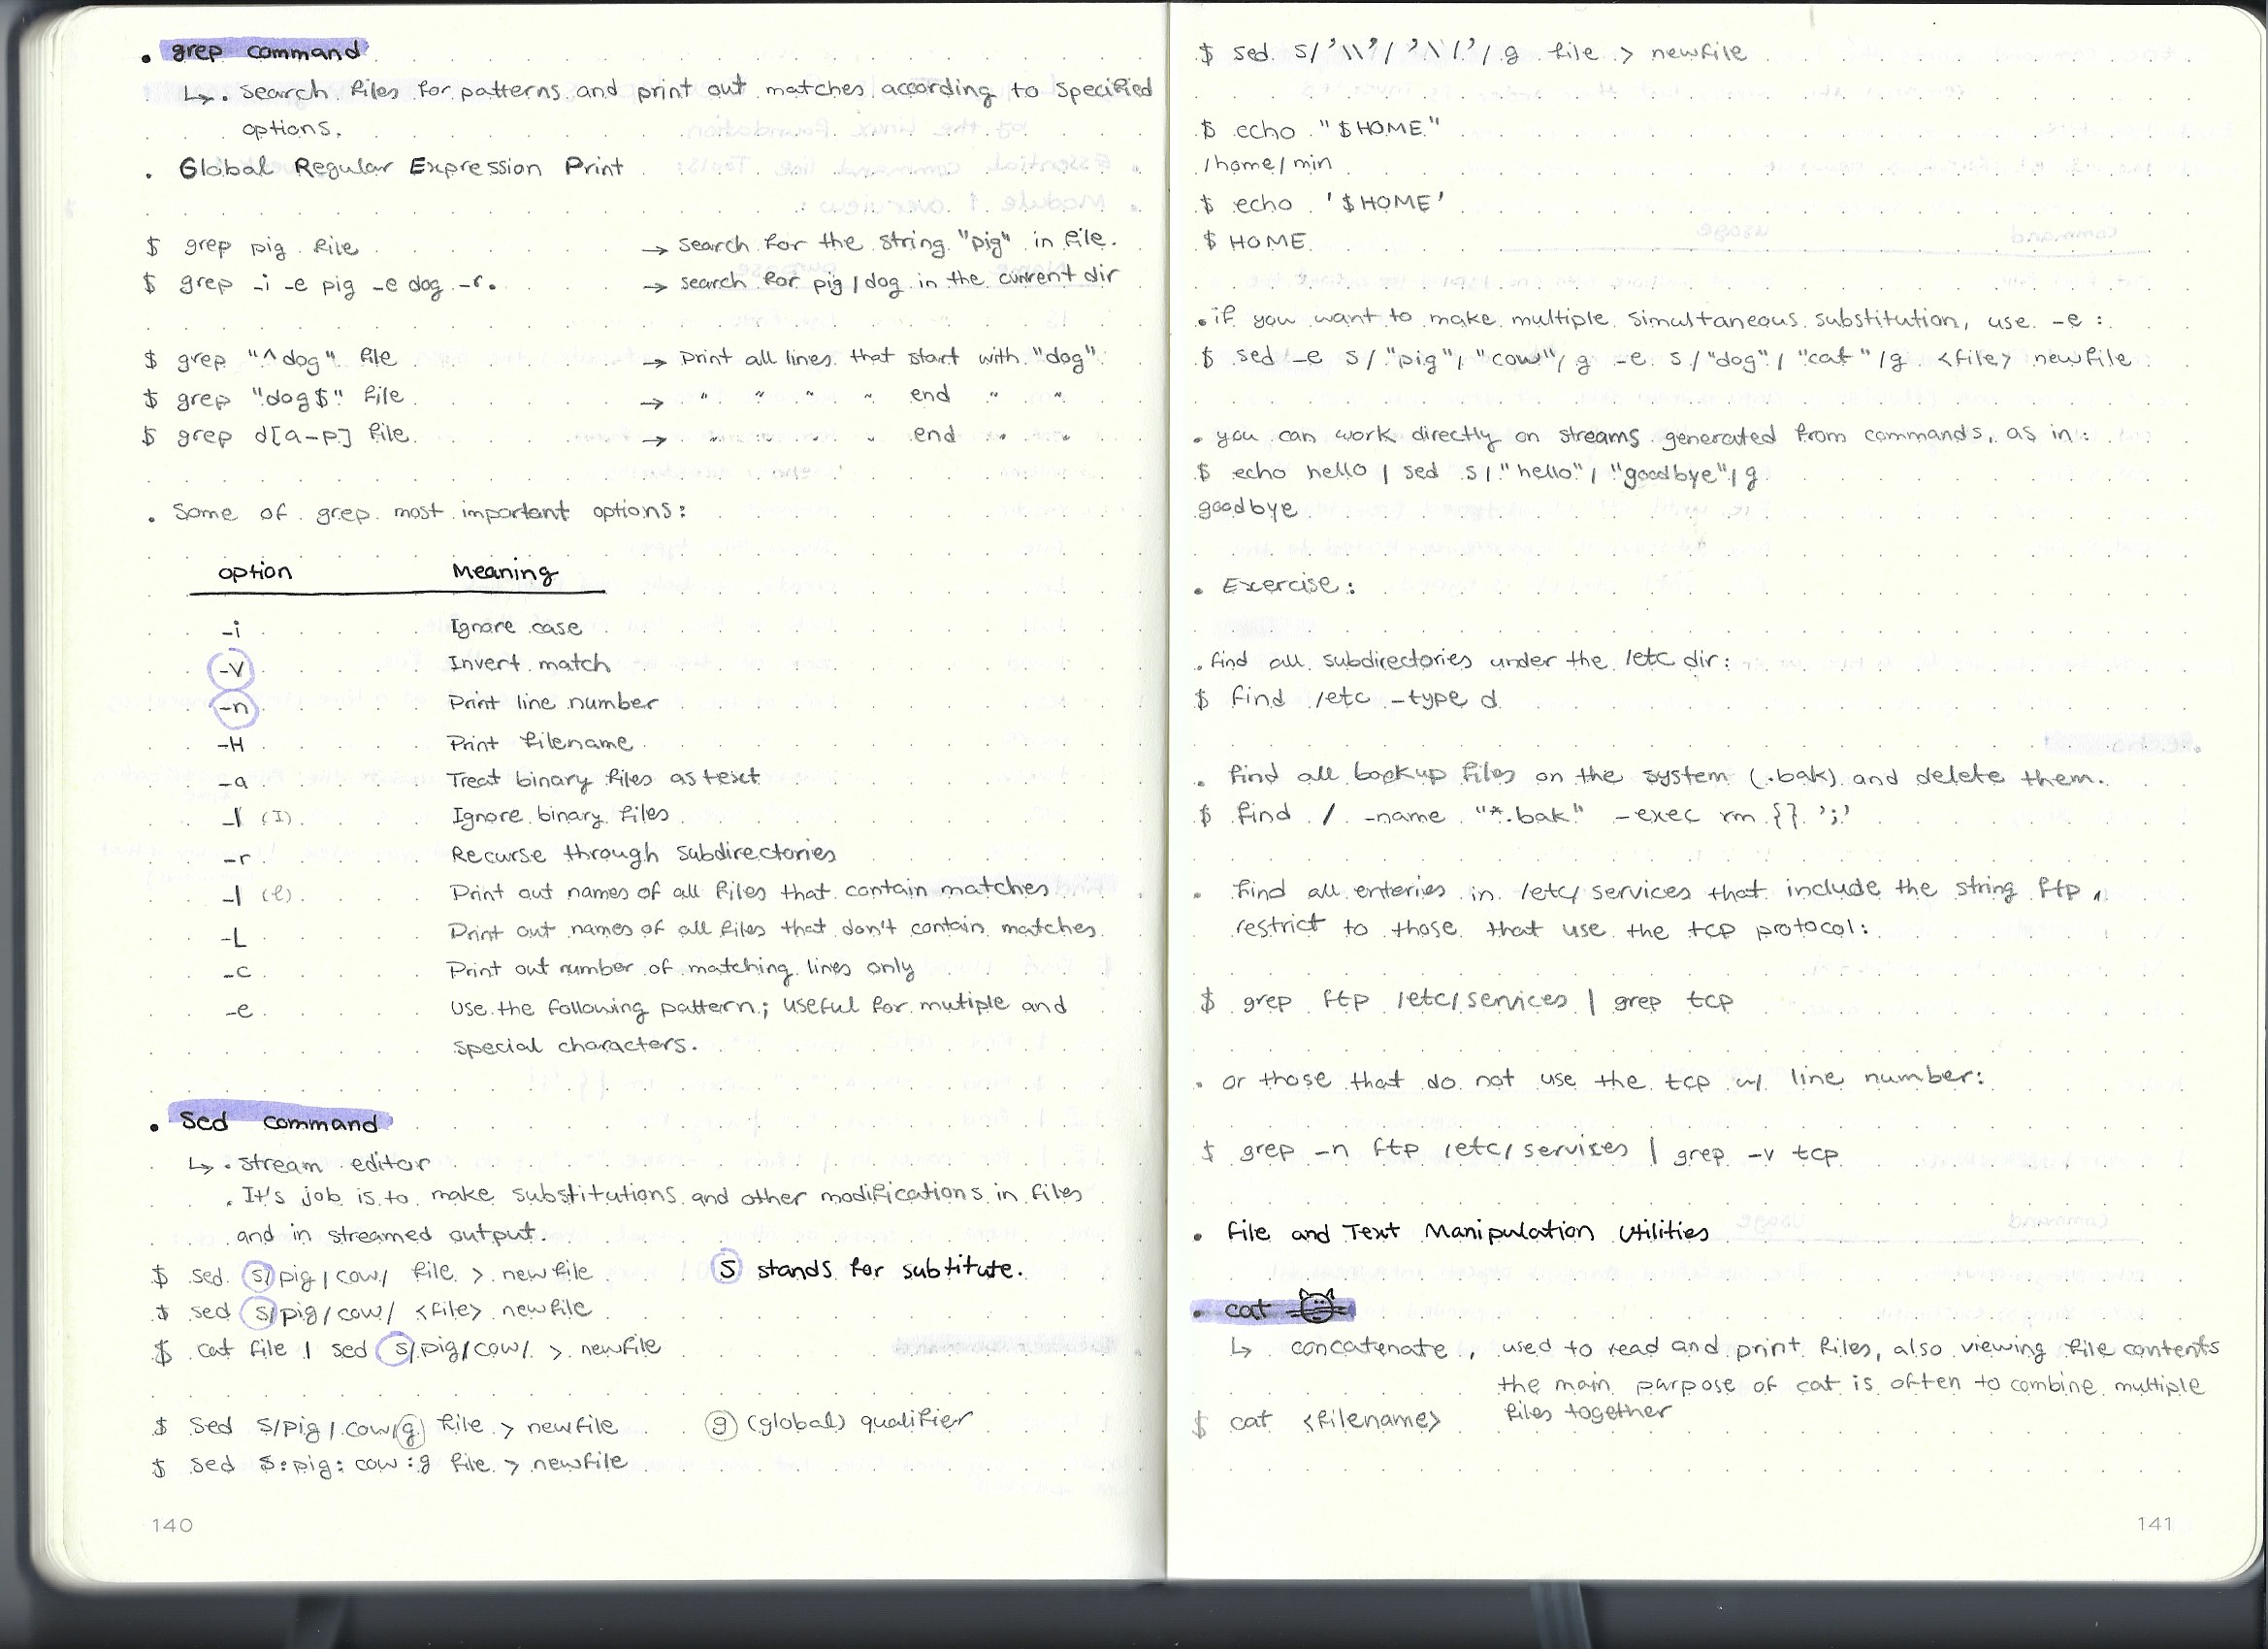 . grep command
↳ . Search files for patterns and print out matches according to specified
options.
. Global Regular Expression Print
$ grep pig file → Search for the string "pig" in file.
$ grep -i -e pig -e dog -r. → search for pig/dog in the current dir
$ grep "^dog" file → Print all lines that start with "dog"
$ grep "dog$" file → " " " " end " "
$ grep d[a-p] file → " " " " end " "
. Some of grep most important options:
option Meaning
-i Ignore case
-v Invert match
-n Print line number
-H Print filename
-a Treat binary files as text
-I (I) Ignore binary files
-r Recurse through subdirectories
-l (l) Print out names of all files that contain matches
-L Print out names of all files that don't contain matches
-c Print out number of matching lines only
-e Use the following pattern; useful for mutiple and
special characters.
. sed command
↳ . stream editor
. It's job is to make substitutions and other modifications in files
and in streamed output.
$ sed s/pig/cow/ file > newfile S stands for substitute.
$ sed s/pig/cow/ <file> newfile
$ cat file | sed s/pig/cow/ > newfile
$ sed s/pig/cow/g file > newfile g (global) qualifier
$ sed s:pig:cow:g file > newfile
140
$ sed s/'\\'/'\/'/g file > newfile
$ echo "$HOME"
/home/min
$ echo '$HOME'
$HOME
. if you want to make multiple simultaneous substitution, use -e :
$ sed -e s/"pig"/"cow"/g -e s/"dog"/"cat"/g <file> newfile
. you can work directly on streams generated from commands, as in:
$ echo hello | sed s/"hello"/"goodbye"/g
goodbye
. Exercise:
. find all subdirectories under the /etc dir:
$ find /etc -type d
. find all bockup files on the system (.bak) and delete them.
$ find / -name "*.bak" -exec rm {} ';'
. find all enteries in /etc/services that include the string ftp,
restrict to those that use the tcp protocol:
$ grep ftp /etc/services | grep tcp
. or those that do not use the tcp w/ line number:
$ grep -n ftp /etc/services | grep -v tcp
. File and Text Manipulation Utilities
. cat
↳ concatenate, used to read and print files, also viewing file contents
the main parpose of cat is often to combine multiple
$ cat <filename> files together
141